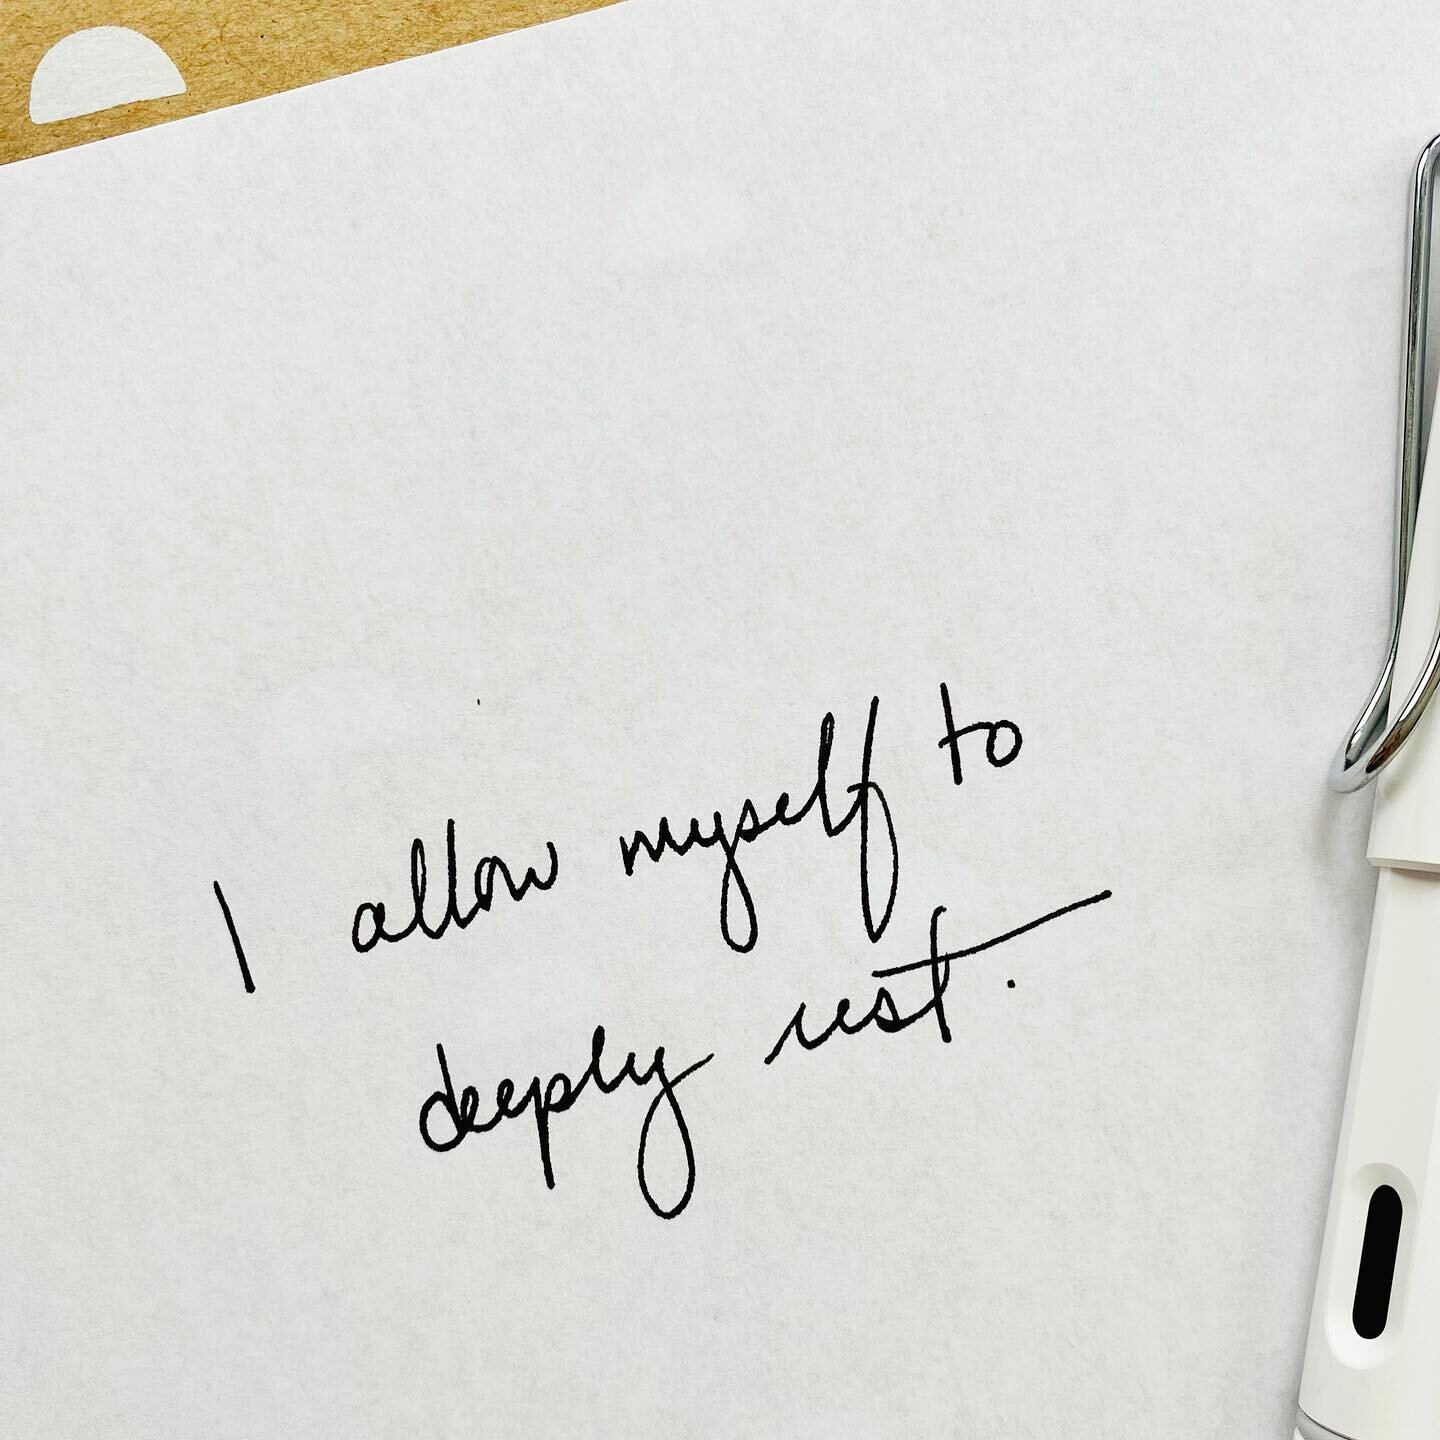 I allow myself to
deeply rest.